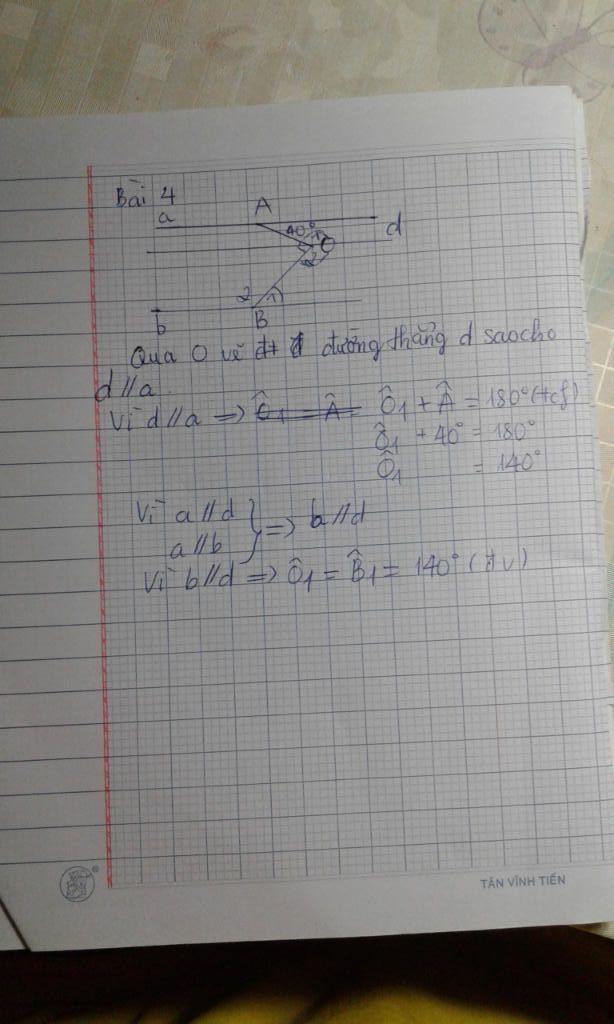 Bài 4
a
A
40°
1
O
d
2
2
1
b
B
Qua O vẽ đường thẳng d sao cho
d // a
Vì d // a => Ô1 = Â Ô1 + Â = 180° (tcf)
Ô1 + 40° = 180°
Ô1 = 140°
Vì a // d
a // b } => b // d
Vì b // d => Ô1 = B̂1 = 140° (đ v)
TÂN VĨNH TIẾN